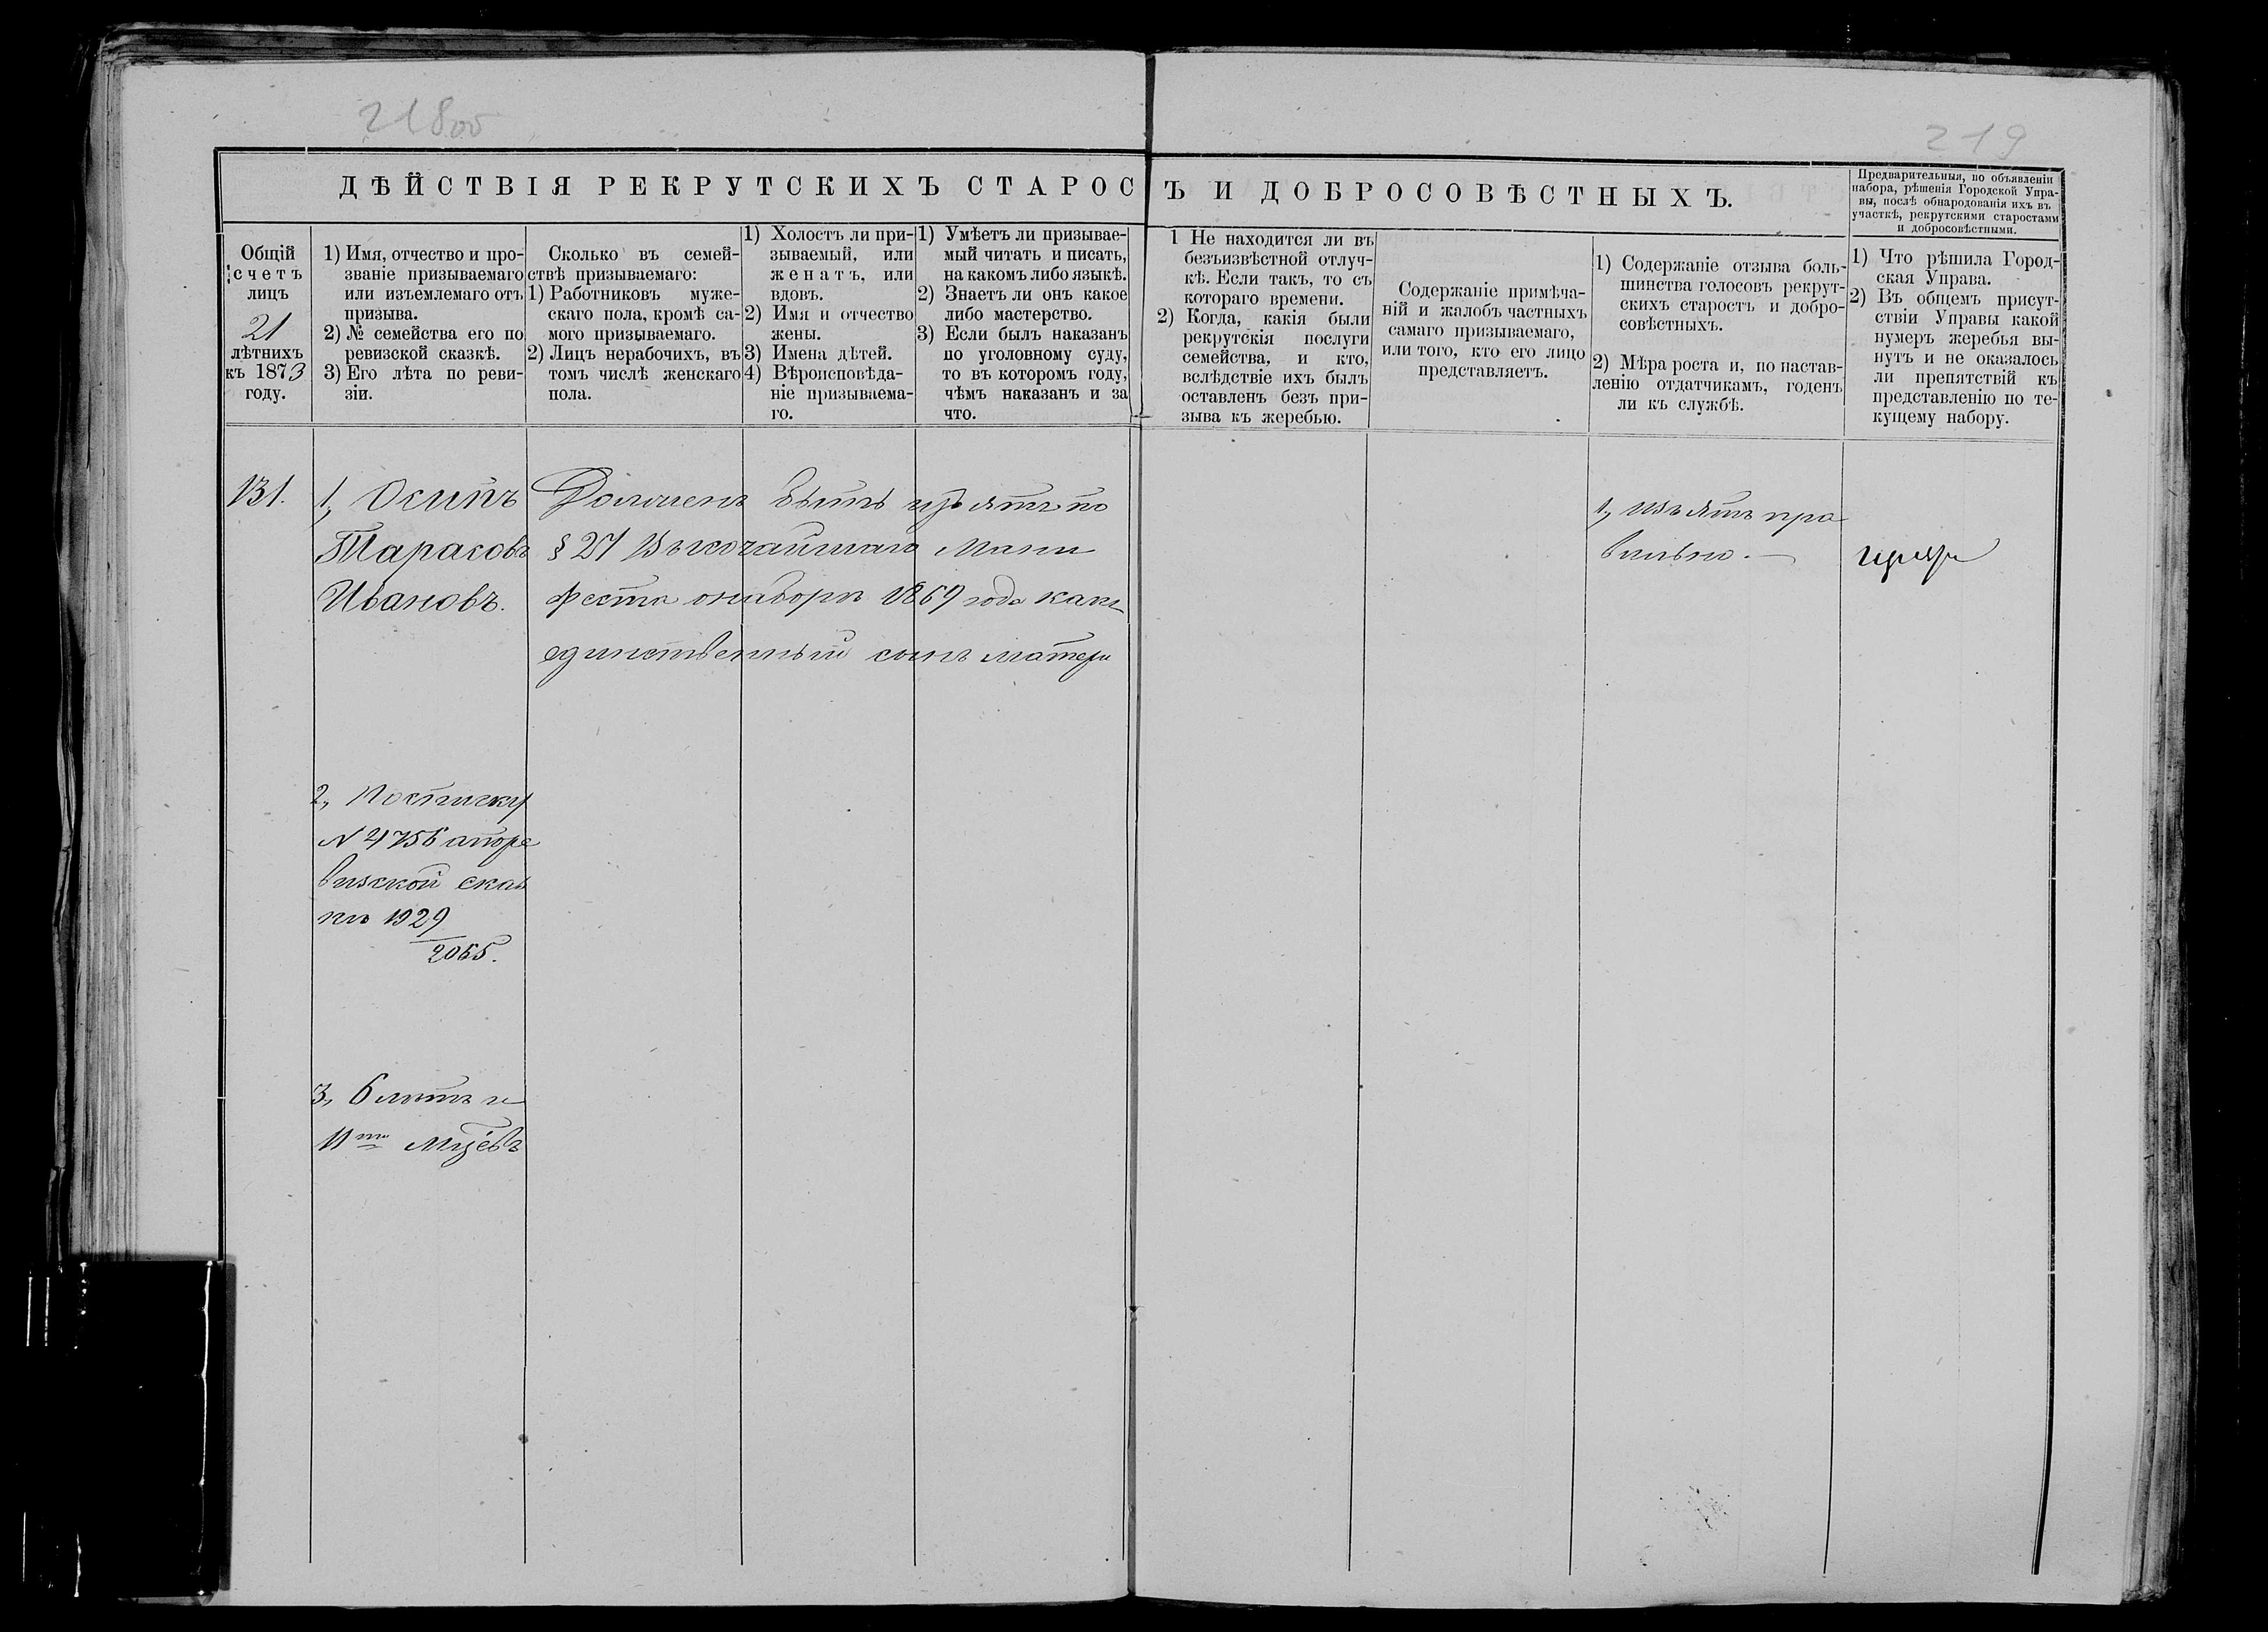 218об
219
ДѢЙСТВІЯ РЕКРУТСКИХЪ СТАРОСТЪ И ДОБРОСОВѢСТНЫХЪ.
Предварительныя, по объявленіи
набора, рѣшенія Городской Упра-
вы, послѣ обнародованія ихъ въ
участкѣ, рекрутскими старостами
и добросовѣстными.
Общій
счетъ
лицъ
21
лѣтнихъ
къ 1873
году.
1) Имя, отчество и про-
званіе призываемаго
или изъемлемаго отъ
призыва.
2) № семейства его по
ревизской сказкѣ.
3) Его лѣта по реви-
зіи.
Сколько въ семей-
ствѣ призываемаго:
1) Работниковъ муже-
скаго пола, кромѣ са-
мого призываемаго.
2) Лицъ нерабочихъ, въ
томъ числѣ женскаго
пола.
1) Холостъ ли при-
зываемый, или
женатъ, или
вдовъ.
2) Имя и отчество
жены.
3) Имена дѣтей.
4) Вѣроисповѣда-
ніе призываема-
го.
1) Умѣетъ ли призывае-
мый читать и писать,
на какомъ либо языкѣ.
2) Знаетъ ли онъ какое
либо мастерство.
3) Если былъ наказанъ
по уголовному суду,
то въ которомъ году,
чѣмъ наказанъ и за
что.
1 Не находится ли въ
безъизвѣстной отлуч-
кѣ. Если такъ, то съ
котораго времени.
2) Когда, какія были
рекрутскія послуги
семейства, и кто,
вслѣдствіе ихъ былъ
оставленъ безъ при-
зыва къ жеребью.
Содержаніе примѣча-
ній и жалобъ частныхъ
самаго призываемаго,
или того, кто его лицо
представляетъ.
1) Содержаніе отзыва боль-
шинства голосовъ рекрут-
скихъ старостъ и добро-
совѣстныхъ.
2) Мѣра роста и, по настав-
ленію отдатчикамъ, годенъ
ли къ службѣ.
1) Что рѣшила Город-
ская Управа.
2) Въ общемъ присут-
ствіи Управы какой
нумеръ жеребья вы-
нутъ и не оказалось
ли препятствій къ
представленію по те-
кущему набору.
131.
1, Осипъ
Тарасовъ
Ивановъ.
2, Посписку
N 4756 апоре
визской сказ
кѣ 1929
2065.
3, 6 лѣтъ и
11ти мцѣвъ
Долженъ быть изъятъ по
§ 27 Высочайшаго Мани
феста онаборѣ 1869 года какъ
единственный сынъ матери
1, изъятъ пра
вильно. —